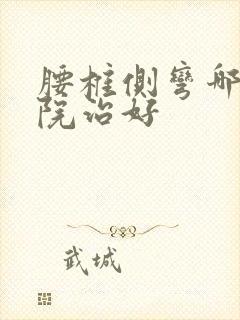 腰椎側彎哪
院治好
武城